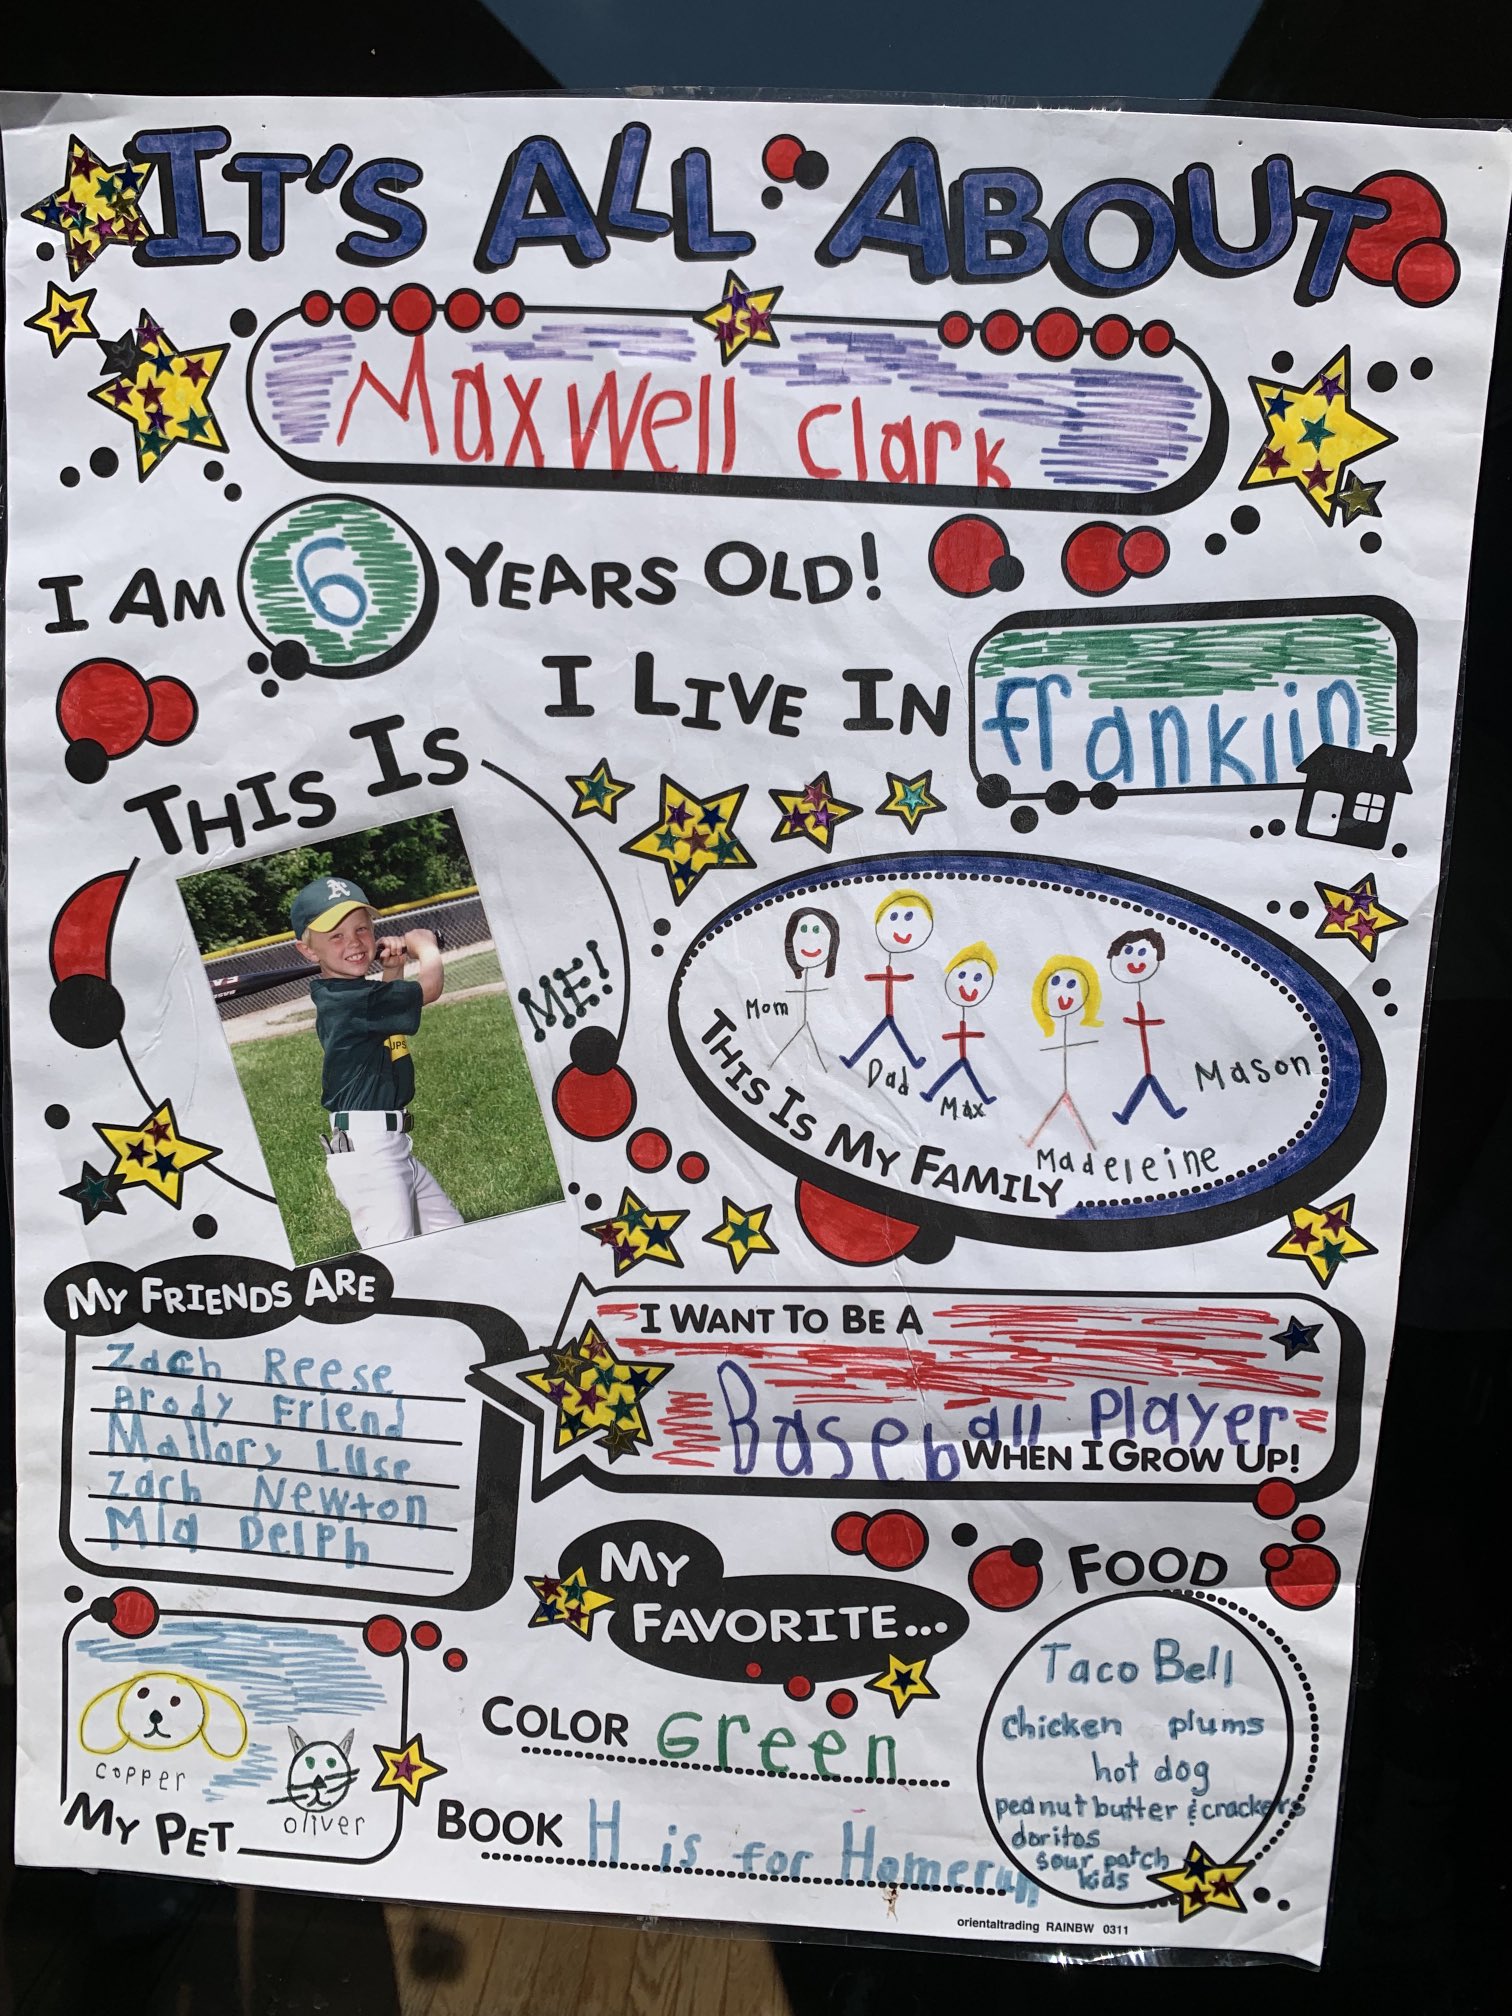 IT'S ALL ABOUT
MaxWell clark
I AM 6 YEARS OLD!
I LIVE IN franklin
THIS IS
ME!
A
Mom
Dad
Max
Madeleine
Mason
THIS IS MY FAMILY
MY FRIENDS ARE
Zach Reese
Brody Friend
Mallory Luse
Zach Newton
Mia Delph
I WANT TO BE A
Baseball Player
WHEN I GROW UP!
MY
FAVORITE...
COLOR Green
BOOK H is for Homerun
FOOD
Taco Bell
chicken plums
hot dog
peanut butter & crackers
doritos
sour patch
kids
copper
oliver
MY PET
orientaltrading RAINBW 0311